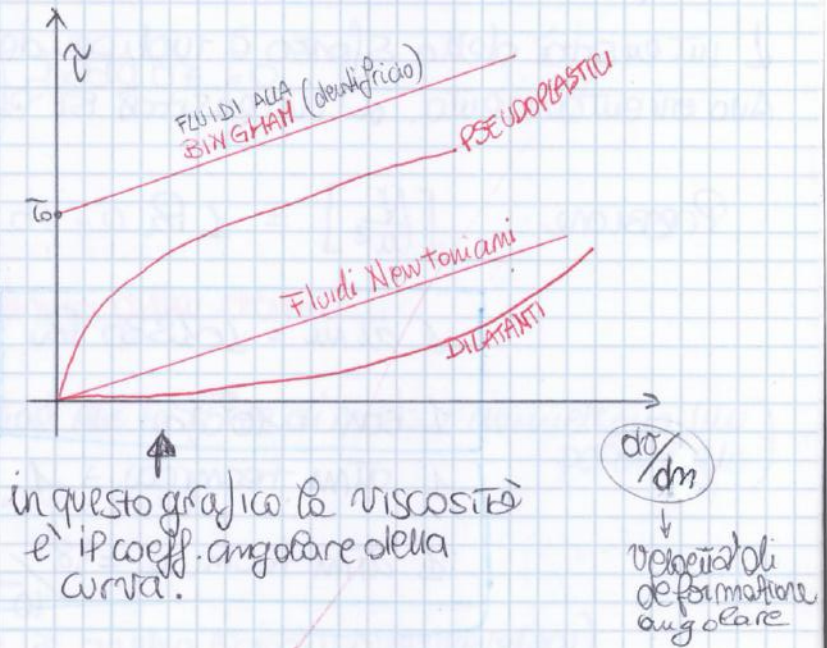 τ
FLUIDI ALLA (dentifricio)
BINGHAM
PSEUDOPLASTICI
τ₀
Fluidi Newtoniani
DILATANTI
dv/dn
in questo grafico la viscosità
e' il coeff. angolare della
curva.
velocita' di
deformazione
angolare